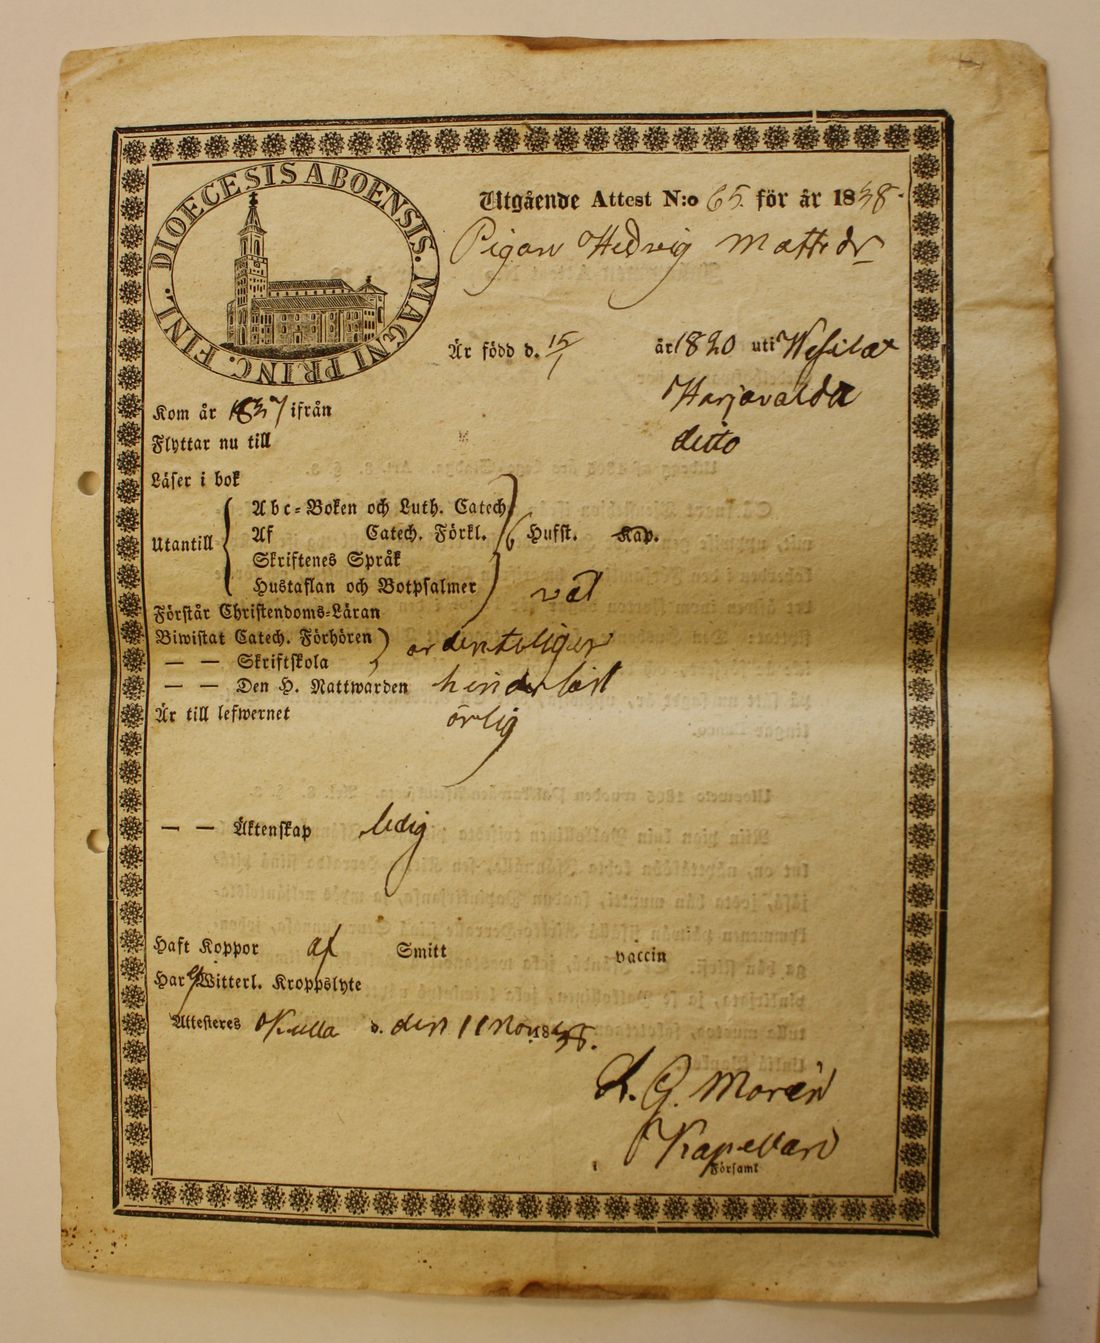 DIOECESIS ABOENSIS. MAGNI PRINC. FINL.
Utgående Attest N:o 65. för år 1838.
Pigan Hedvig Mattsdr
Är född d. 15/1 år 1820 uti Wesilax
Kom år 1837 ifrån Harjavalda
Flyttar nu till ditto
Läser i bok
Utantill
Abc-Boken och Luth. Catech.
Af Catech. Förkl. Hufst. Kap.
Skriftenes Språk
Hustaflan och Botpsalmer
Förstår Christendoms-Läran väl
Biwistat Catech. Förhören ordenteligen
— — Skriftskola
— — Den H. Nattwarden hinderlöst
Är till lefwernet ärlig
— — Äktenskap ledig
Haft Koppor af Smitt vaccin
Har ej Witterl. Kroppslyte
Attesteres Kulla d. den 11 Nov. 1838.
L. G. Morén
Kapellan
i Församl